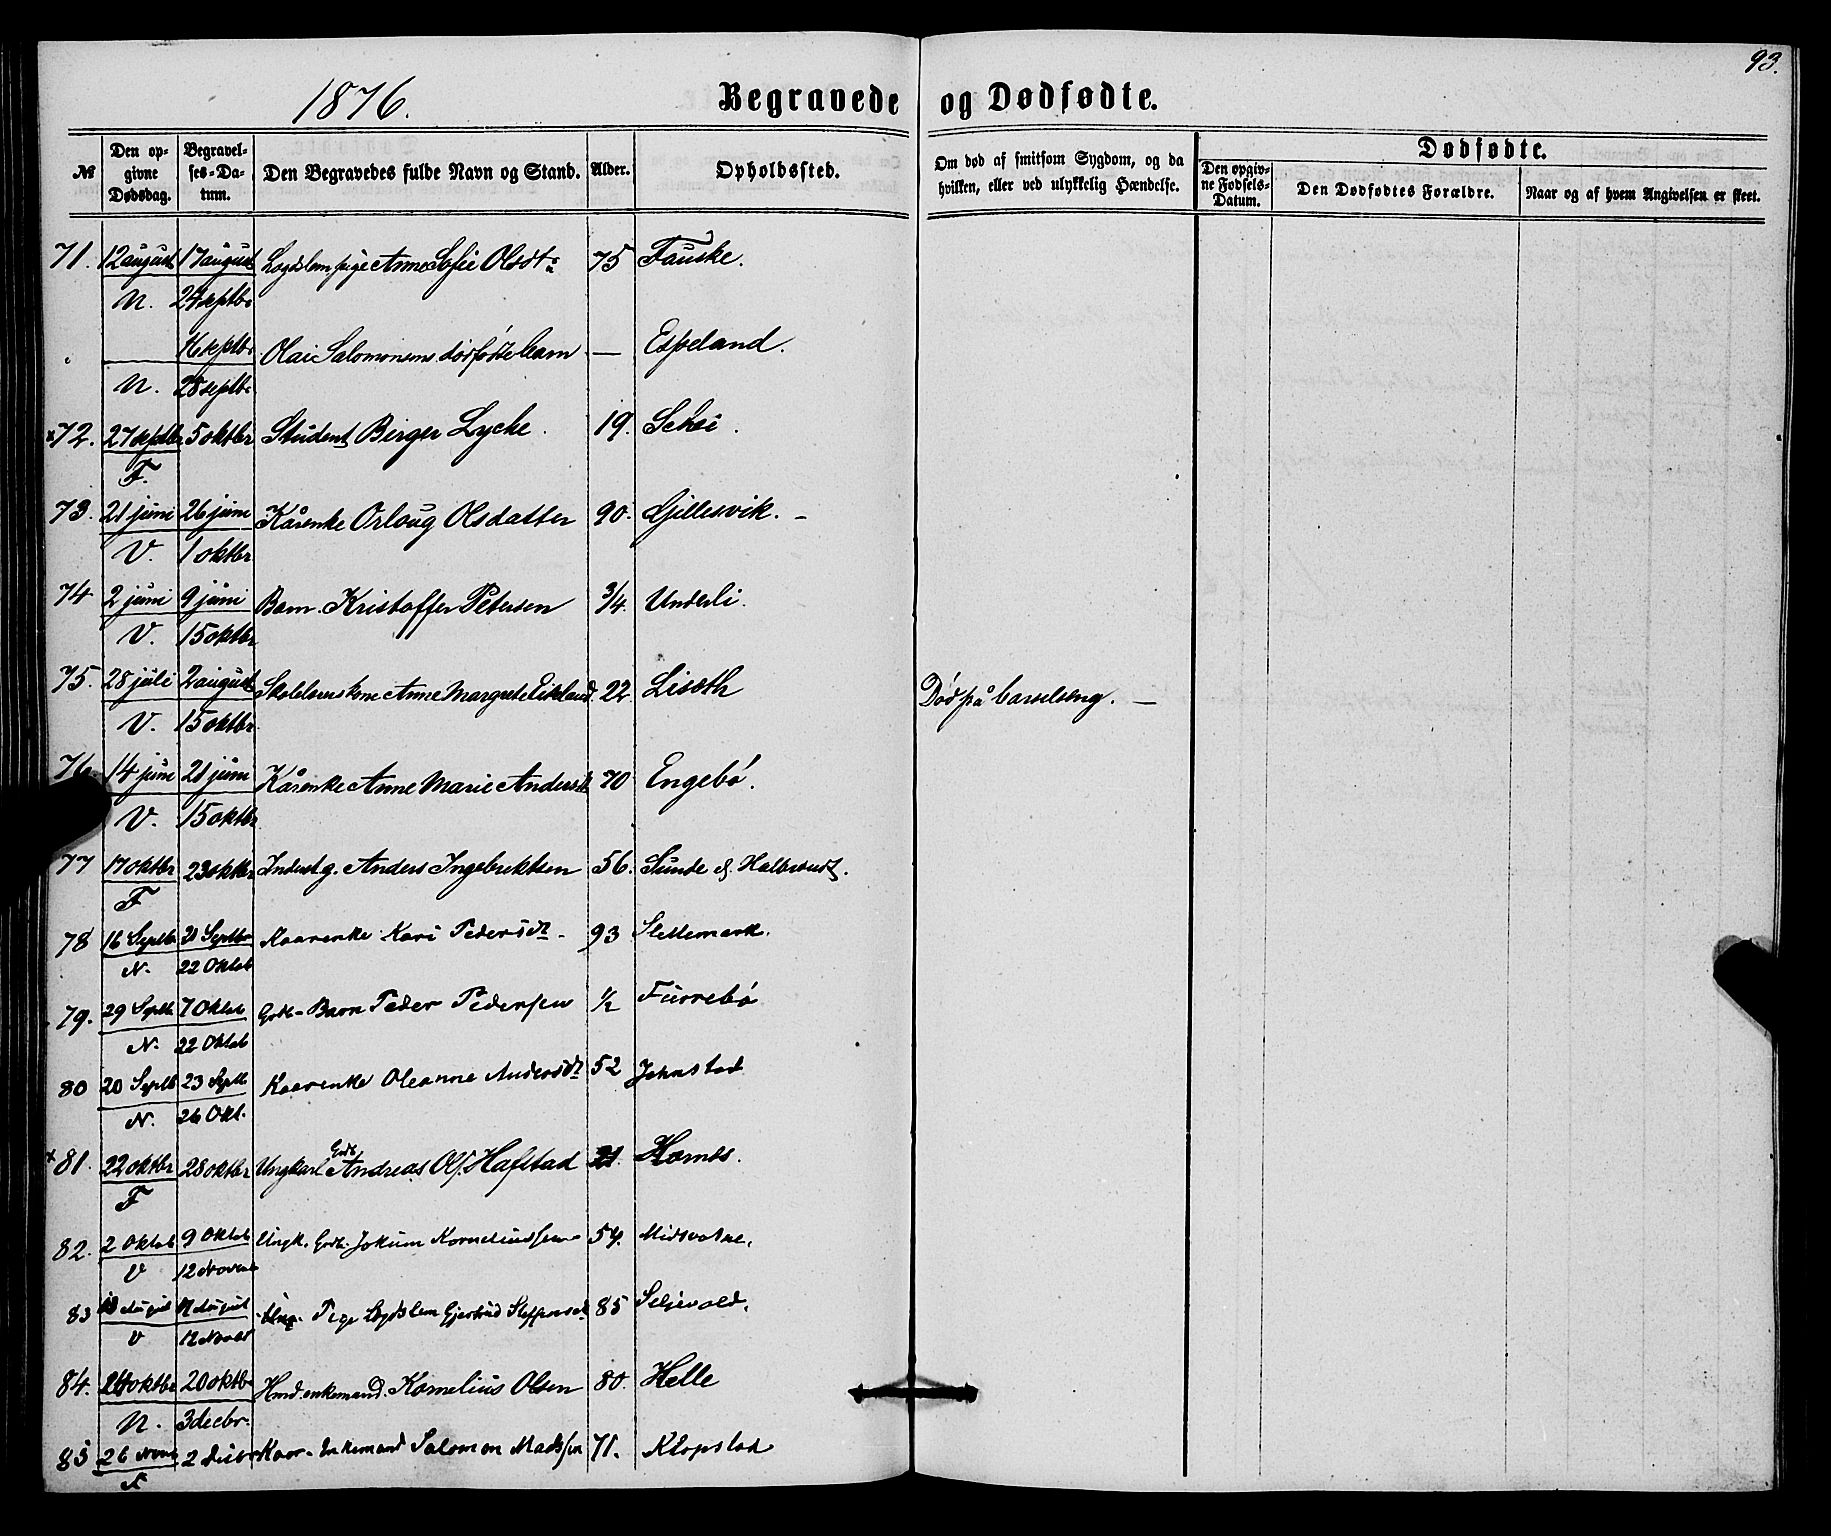 93.
1876.
Begravede og Dødfødte.
№
Den opgivne Dødsdag.
Begravelses-Datum.
Den Begravedes fulde Navn og Stand.
Alder.
Opholdssted.
Om død af smitsom Sygdom, og da hvilken, eller ved ulykkelig Hændelse.
Dødfødte.
Den opgivne Fødsels-Datum.
Den Dødfødtes Forældre.
Naar og af hvem Angivelsen er skeet.
71. 12 august 17 august Lægdslem pige Anne Sofie Olsdtr 75 Fauske.
N. 24 septbr
16 septbr Olai Salomonsens dødfødte barn — Espeland.
N. 28 septbr
x 72. 27 septbr 5 oktbr Student Berger Lycke. 19. Schei.
F.
73. 21 juni 26 juni Kårenke Orloug Olsdatter 90. Gjillesvik. –
V. 1 oktbr
74 2 juni 9 juni Barn. Kristoffer Petersen 3/4. Underli.
V. 15 oktbr
75. 28 juli 2 august Anne Margrete 22. Liseth Død på barselseng. —
V. 15 oktbr
76 14 juni 21 juni Kårenke Anne Marie Andersd 70 Engebö.
V. 15 oktbr
77 17 oktbr 23 oktbr Inderstg. Anders Ingebrektsen 56. Sunde
F
78 16 Septb 21 Septbr Kaarenke Kari Pedersdtr 93 Slettemark.
N. 22 Oktob
79. 29 Septb. 7 Oktob Grdb- Barn Peder Pedersen 1/2 Furrebø
N. 22 Oktob
80 20 Septb 23 Septb Kaarenke Oleanne Andersdtr 52 Johnstad
N. 26 Okt.
x 81. 22 oktbr 28 oktbr Ungkarl Grdb Andreas Ols. Hafstad 21. Hornes.
F
82. 2 Oktob 9 Oktob Ungk. Grdb. Jokum Korneliussen 54. Midsvatne.
V 12 Novem
83 August 17 August Pige Lægdslem Gjertrud Steffensd 85 Seljevold.
V 12 Novbr
84. oktbr 20 oktbr Husd. enkemand. Kornelius Olsen 80. Helle
N. 3 decbr.
85 26 Novb 2 Kaar- Enkemand Salomon Madssen 71. Klopstad
F